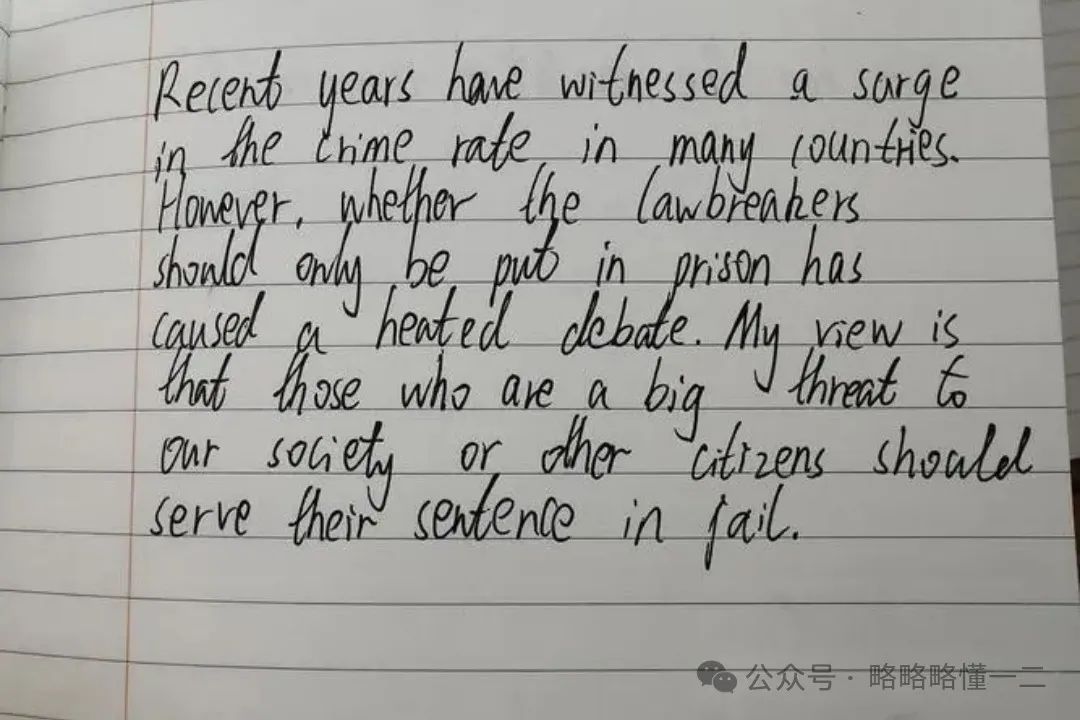 Recent years have witnessed a surge
in the crime rate in many countries.
However, whether the lawbreakers
should only be put in prison has
caused a heated debate. My view is
that those who are a big threat to
our society or other citizens should
serve their sentence in jail.
公众号 · 略略略懂一二